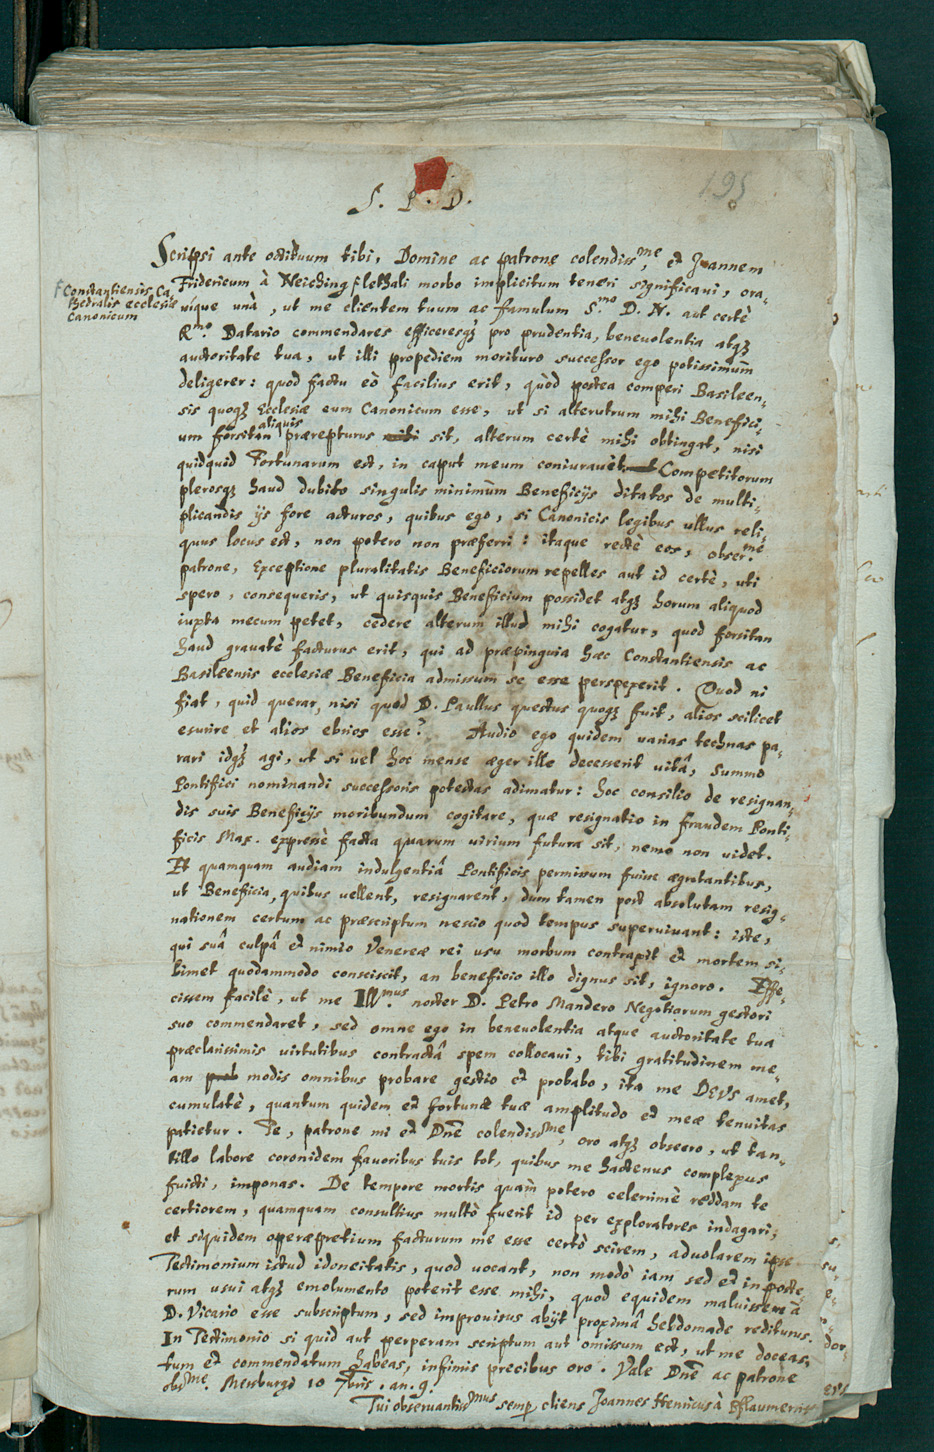 195
S. P. D.
Scripsi ante octiduum tibi, Domine ac patrone colendissme, et Joannem
Fridericum à Neiching ꝉ lethali morbo implicitum teneri significavi, ora-
ꝉ Constantiensis Ca-
thedralis ecclesiæ
Canonicum
vique unà, ut me clientem tuum ac famulum S.mo D. N. aut certè
R.mo Datario commendares efficeresqꝫ pro prudentia, benevolentia atqꝫ
auctoritate tua, ut illi propediem morituro successor ego potissimùm
deligerer: quod factu eò facilius erit, quòd postea comperi Basileen-
sis quoqꝫ Ecclesiæ eum Canonicum esse, ut si alterutrum mihi Benefici-
um forsitan aliquis præerepturus sit, alterum certè mihi obtingat, nisi
quidquid Fortunarum est, in caput meum coniuravêt. Competitorum
plerosqꝫ haud dubito singulis minimùm Beneficijs ditatos de multi-
plicandis ijs fore acturos, quibus ego, si Canonicis legibus ullus reli-
quus locus est, non potero non præferri: itaque rectè eos, obser.me
patrone, Exceptione pluralitatis Beneficiorum repelles aut id certè, uti
spero, consequeris, ut quisquis Beneficium possidet atqꝫ horum aliquod
iuxta mecum petet, cedere alterum illud mihi cogatur, quod forsitan
haud gravatè facturus erit, qui ad præpinguia hæc Constantiensis ac
Basileensis ecclesiæ Beneficia admissum se esse perspexerit. Quod ni
fiat, quid querar, nisi quod D. Paullus questus quoqꝫ fuit, alios scilicet
esurire et alios ebrios esse? Audio ego quidem varias technas pa-
rari idqꝫ agi, ut si vel hoc mense æger ille decesserit vitâ, summo
Pontifici nominandi successoris potestas adimatur: hoc consilio de resignan-
dis suis Beneficijs moribundum cogitare, quæ resignatio in fraudem Ponti-
ficis Max. expressè facta quarum virium futura sit, nemo non videt.
Et quamquam audiam indulgentiâ Pontificis permissum fuisse ægrotantibus,
ut Beneficia, quibus vellent, resignarent, dum tamen post absolutam resig-
nationem certum ac præscriptum nescio quod tempus supervivant: iste,
qui suâ culpâ et nimio Venereæ rei usu morbum contraxit et mortem si-
bimet quodammodo consciscit, an beneficio illo dignus sit, ignoro. Effe-
cissem facilè, ut me Ill.mus noster D. Petro Mandero Negotiorum gestori
suo commendaret, sed omne ego in benevolentia atque auctoritate tua
præclarissimis virtutibus contractâ spem collocavi, tibi gratitudinem me-
am modis omnibus probare gestio et probabo, ita me DEVS amet,
cumulatè, quantum quidem et fortunæ tuæ amplitudo et meæ tenuitas
patietur. Te, patrone mi et Dnē colendissme, oro atqꝫ obsecro, ut tan-
tillo labore coronidem favoribus tuis tot, quibus me hactenus complexus
fuisti, imponas. De tempore mortis quàm potero celerrimè reddam te
certiorem, quamquam consultius multò fuerit id per exploratores indagari;
et siquidem operæpretium facturum me esse certò scirem, advolarem ipse
Testimonium istud idoneitatis, quod vocant, non modò iam sed et in poste-
rum usui atqꝫ emolumento poterit esse mihi, quod equidem maluissem à
D. Vicario esse subscriptum, sed improvisus abijt proximâ hebdomade rediturus.
In Testimonio si quid aut perperam scriptum aut omissum est, ut me doceas
tum et commendatum habeas, infimis precibus oro. Vale Dnē ac patrone
obsme. Mersburgi 10 7bris. an. 9.
Tui observantissmus semp cliens Joannes Henricus à Pflaumern